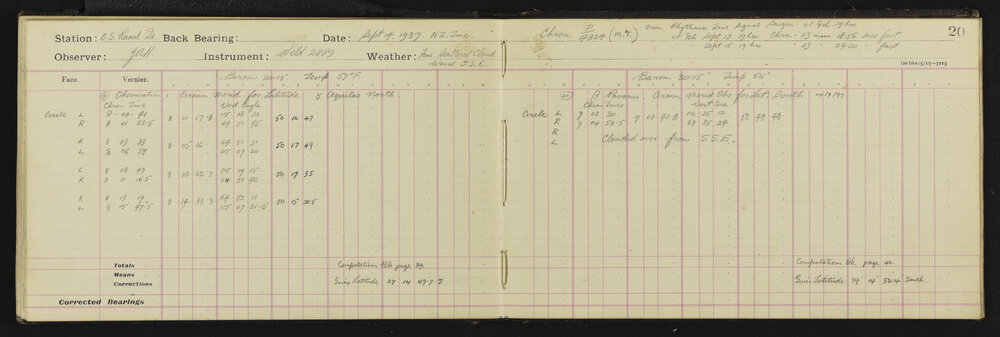 Station: O.S. Raoul Is Back Bearing: Date: Sept 14. 1937. N.Z. Time
Observer: Instrument: Wild 2889 Weather: Fine, Scattered Cloud
Wind S.S.E.
Face. Vernier. Barom 30.15 Temp 57°F.
Observation: Circum Merid for Latitude γ Aquilae North.
Chron Time Vert Angle
Circle L 8 - 00 - 41 115 08 32
R 8 01 53.5 8 01 17.3 64 51 45 50 16 47
R 8 03 33 64 51 31
L 8 06 59 8 05 16 115 09 20 50 17 49
L 8 08 49 115 09 15
R 8 11 16.5 8 10 02.7 64 51 40 50 17 35
R 8 13 19 64 52 11
L 8 15 47.5 8 14 33.3 115 07 31.5 50 15 20.5
Totals Computations Bk page 39.
Means
Corrections Gives Latitude 29 14 49.7 S
Corrected Bearings
Chron. 4324 (M.T.) From Rhythmic Time Signal Saigon at Gch 19 hrs
at Gch Sept 13 19 hrs Chron. 03 mins 18.56 secs fast
Sept 15 19 hrs 03 - 29.20 - fast
20
Barom 30.15" Temp 55°
β Pavonis Circum Merid Obs for Lat. South
Chron Times Vert Circ.
Circle L 9 02 30 116 25 12
R 9 04 53.5 9 03 41.8 63 35 24 52 49 48
R
L Clouded over from S.S.E.
Computations Bk. page 40.
Gives Latitude 29° 14 52.4 South